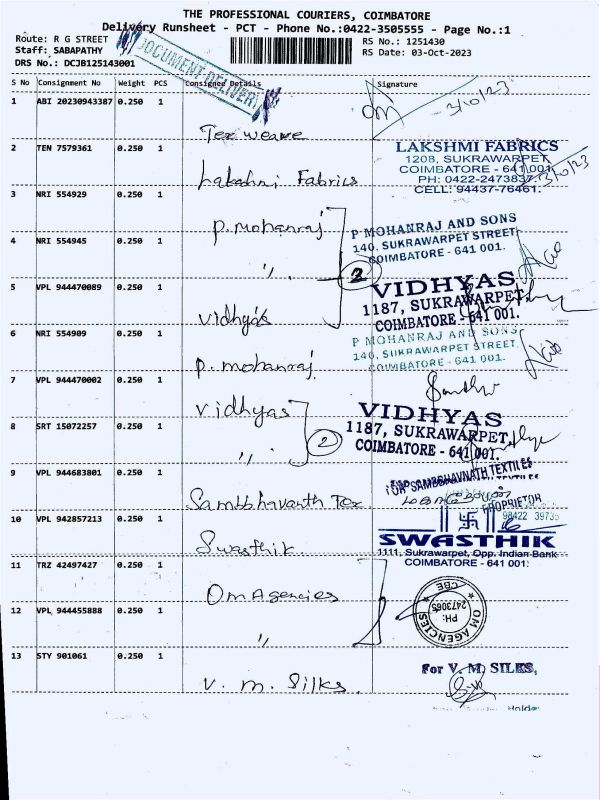 THE PROFESSIONAL COURIERS, COIMBATORE
Delivery Runsheet - PCT - Phone No.:0422-3505555 - Page No.:1
Route: R G STREET
RS No.: 1251430
Staff: SABAPATHY
RS Date: 03-Oct-2023
DRS No.: DCJB125143001
DOCUMENT DELIVERY
S No Consignment No Weight PCS Consigned Details Signature
1 ABI 20230943387 0.250 1
3/10/23
Tex weave
2 TEN 7579361 0.250 1
LAKSHMI FABRICS
1208, SUKRAWARPET
COIMBATORE - 641 001.
PH: 0422-2473837
CELL: 94437-76461.
3/10/23
Lakshmi Fabrics
3 NRI 554929 0.250 1
P. mohanraj
P MOHANRAJ AND SONS
140, SUKRAWARPET STREET
COIMBATORE - 641 001.
4 NRI 554945 0.250 1
"
2
5 VPL 944470089 0.250 1
VIDHYAS
1187, SUKRAWARPET,
COIMBATORE - 641 001.
Vidhya's
6 NRI 554909 0.250 1
P MOHANRAJ AND SONS
140, SUKRAWARPET STREET
COIMBATORE - 641 001.
P. mohanraj
7 VPL 944470002 0.250 1
Vidhyas
VIDHYAS
1187, SUKRAWARPET,
COIMBATORE - 641 001.
8 SRT 15072257 0.250 1
"
2
9 VPL 944683801 0.250 1
For SAMBHAVNATH TEXTILES
PROPRIETOR
Sambhavanth Tex
10 VPL 942857213 0.250 1
98422 39735
SWASTHIK
1111, Sukrawarpet, Opp. Indian Bank
COIMBATORE - 641 001.
Swasthik
11 TRZ 42497427 0.250 1
Om Agencies
OM AGENCIES
PH: 2473065
CBE
12 VPL 944455888 0.250 1
"
13 STY 901061 0.250 1
For V. M. SILKS,
V. m. Silks